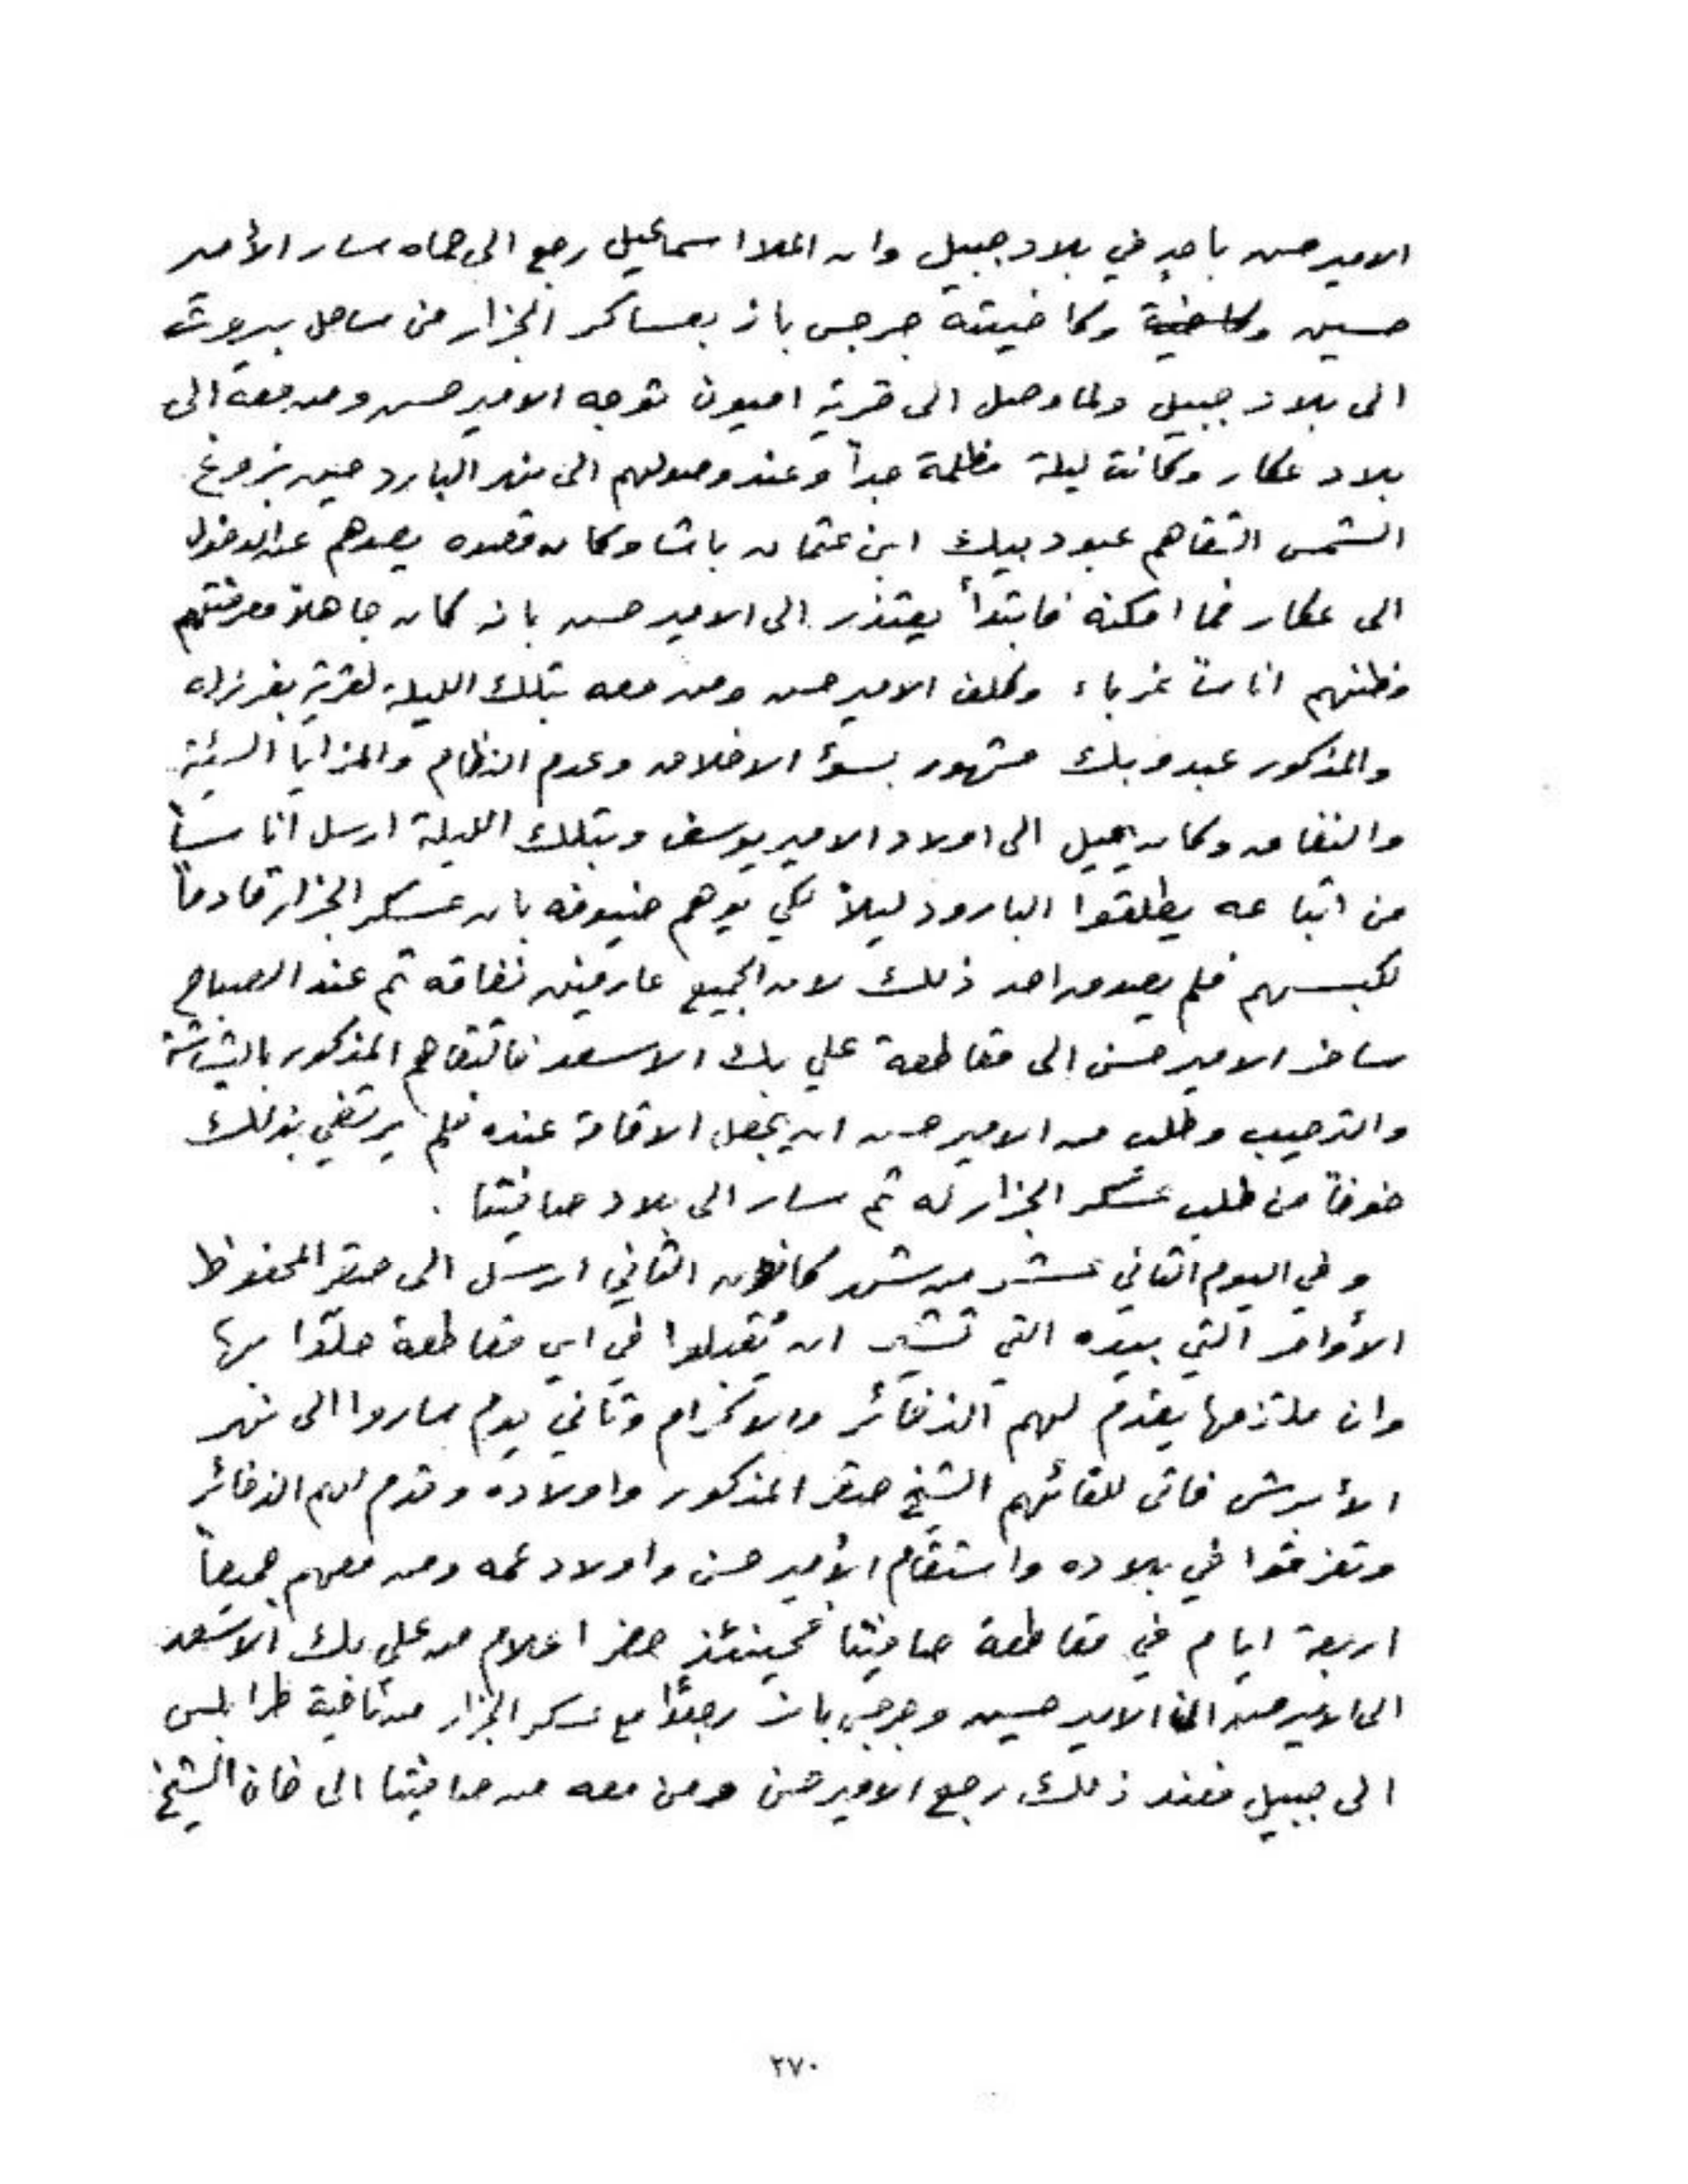 الامير حسن باقٍ في بلاد جبيل وان الملا اسماعيل رجع الى حماه سار الأمير
حسين وكاخيته جرجس باز بعساكر الجزار من ساحل بيروت
الى بلاد جبيل ولما وصل الى قرية اميون توجه الامير حسن ومن معه الى
بلاد عكار وكانت ليلة مظلمة جداً وعند وصولهم الى نهر البارد حين بزوغ
الشمس التقاهم عبود بيك ابن عثمان باشا وكان قصده يصدهم عن الدخول
الى عكار فما امكنه فابتدأ يعتذر الى الامير حسن بانه كان جاهلاً معرفتهم
وظنهم اناساً غرباء وكلف الامير حسن ومن معه بتلك الليلة لقرية بقرزلا
والمذكور عبدو بك مشهور بسوء الاخلاق وعدم النظام والمزايا السيئة
والنفاق وكان يميل الى اولاد الامير يوسف وبتلك الليلة ارسل اناساً
من اتباعه يطلقوا البارود ليلاً لكي يوهم ضيوفه بان عسكر الجزار قادماً
لكبسهم فلم يصدق احد ذلك لان الجميع عارفين نفاقه ثم عند الصباح
سافر الامير حسن الى مقاطعة علي بك الاسعد فالتقاهم المذكور بالبشاشة
والترحيب وطلب من الامير حسن ان يجعل الاقامة عنده فلم يرتضي بذلك
خوفاً من طلب عسكر الجزار له ثم سار الى بلاد صافيتا .
وفي اليوم الثاني عشر من شهر كانون الثاني ارسل الى صقر المحفوظ
الأوامر التي بيده التي تشير ان يُقبلوا في اي مقاطعة حلّوا بها
وان ملتزمها يقدم لهم الذخائر والاكرام وثاني يوم ساروا الى نهر
الأبرش فاتى للقائهم الشيخ صقر المذكور واولاده وقدم لهم الذخائر
وتفرقوا في بلاده واستقام الأمير حسن واولاد عمه ومن معهم جميعاً
اربعة ايام في مقاطعة صافيتا فحينئذٍ حضر اعلام من علي بك الاسعد
الى الامير حسن ان الامير حسين وجرجس باز رجعوا مع عسكر الجزار من ناحية طرابلس
الى جبيل فعند ذلك رجع الامير حسن ومن معه من صافيتا الى خان الشيخ
٢٧٠